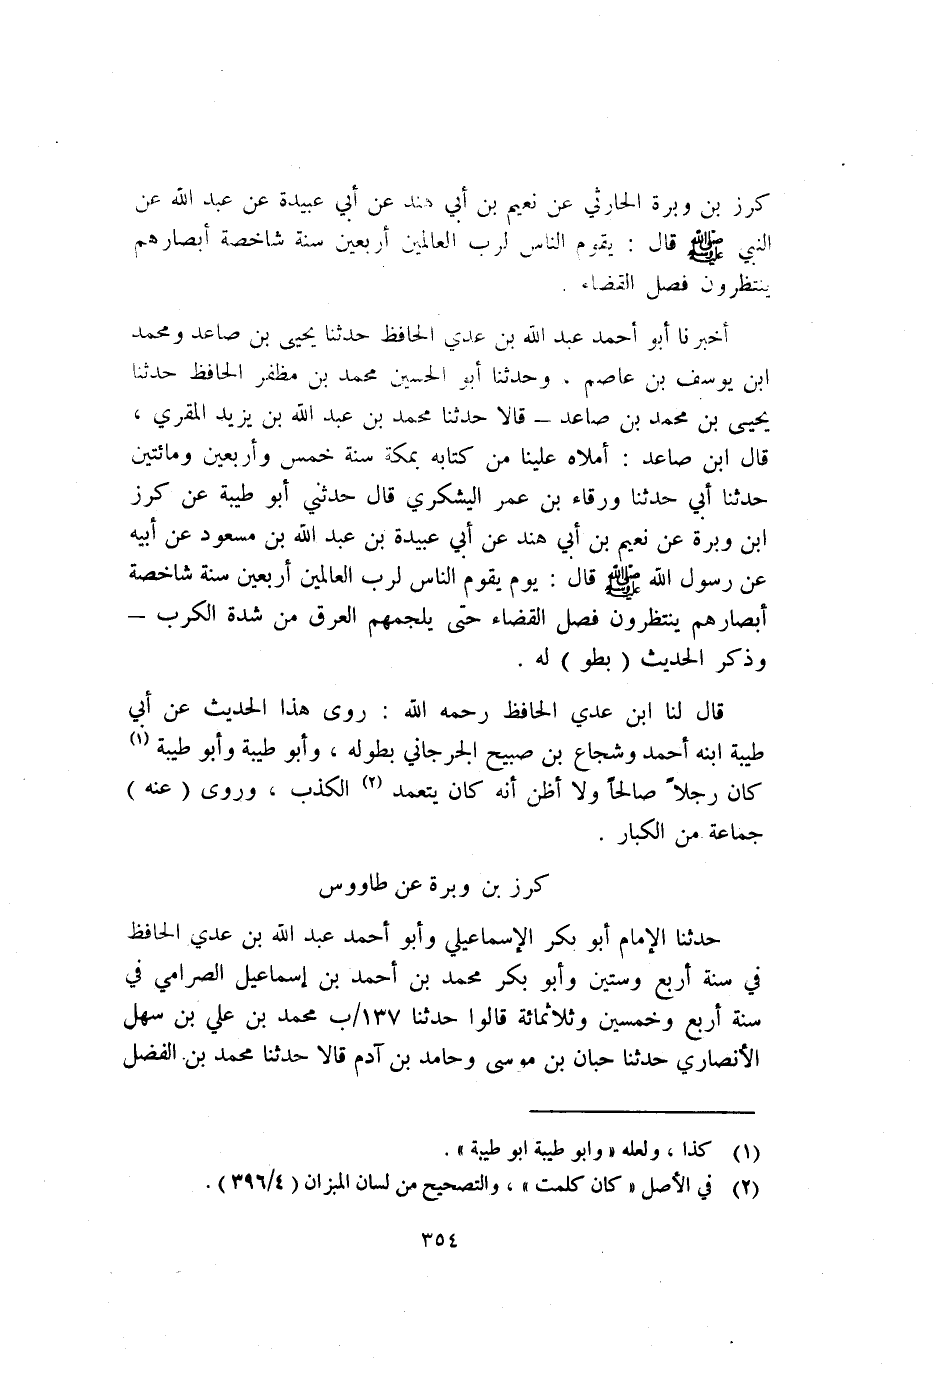 كرز بن وبرة الحارثي عن نعيم بن أبي هند عن أبي عبيدة عن عبد الله عن
النبي ﷺ قال : يقوم الناس لرب العالمين أربعين سنة شاخصة أبصارهم
ينتظرون فصل القضاء .
أخبرنا أبو أحمد عبد الله بن عدي الحافظ حدثنا يحيى بن صاعد ومحمد
ابن يوسف بن عاصم . وحدثنا أبو الحسين محمد بن مظفر الحافظ حدثنا
يحيى بن محمد بن صاعد – قالا حدثنا محمد بن عبد الله بن يزيد المقري ،
قال ابن صاعد : أملاه علينا من كتابه بمكة سنة خمس وأربعين ومائتين
حدثنا أبي حدثنا ورقاء بن عمر اليشكري قال حدثني أبو طيبة عن كرز
ابن وبرة عن نعيم بن أبي هند عن أبي عبيدة بن عبد الله بن مسعود عن أبيه
عن رسول الله ﷺ قال : يوم يقوم الناس لرب العالمين أربعين سنة شاخصة
أبصارهم ينتظرون فصل القضاء حتى يلجمهم العرق من شدة الكرب –
وذكر الحديث ( بطو ) له .
قال لنا ابن عدي الحافظ رحمه الله : روى هذا الحديث عن أبي
طيبة ابنه أحمد وشجاع بن صبيح الجرجاني بطوله ، وأبو طيبة وأبو طيبة (١)
كان رجلاً صالحاً ولا أظن أنه كان يتعمد (٢) الكذب ، وروى ( عنه )
جماعة من الكبار .
كرز بن وبرة عن طاووس
حدثنا الإمام أبو بكر الإسماعيلي وأبو أحمد عبد الله بن عدي الحافظ
في سنة أربع وستين وأبو بكر محمد بن أحمد بن إسماعيل الصرامي في
سنة أربع وخمسين وثلاثمائة قالوا حدثنا ١٣٧/ب محمد بن علي بن سهل
الأنصاري حدثنا حبان بن موسى وحامد بن آدم قالا حدثنا محمد بن الفضل
(١) كذا ، ولعله « وابو طيبة ابو طيبة » .
(٢) في الأصل « كان كلمت » ، والتصحيح من لسان الميزان ( ٣٩٦/٤ ) .
٣٥٤